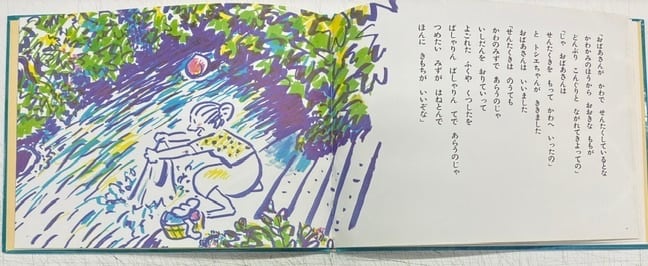 「おばあさんが かわで せんたくしているとな
かわかみのほうから おおきな ももが
どんぶりこ こんぐりと ながれてきよっての」
「じゃ おばあさんは
せんたくきを もって かわへ いったの」
と トシエちゃんが ききました
おばあさんは いいました
「せんたくきは のうても
かわのみずで あらうのじゃ
いしだんを おりていって
よごれた ふくや くつしたを
ばしゃりん ばしゃりん てで あらうのじゃ
つめたい みずが はねとんで
ほんに きもちが いいぞな」